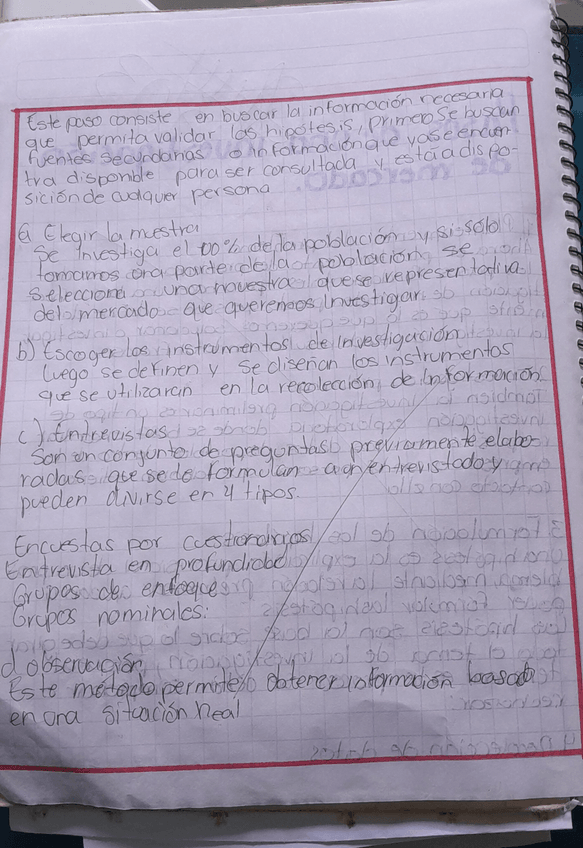 Este paso consiste en buscar la información necesaria
que permita validar las hipotesis, primero se buscan
fuentes secundarias o información que ya se encuen-
tra disponible para ser consultada y está a dispo-
sición de cualquier persona
a Elegir la muestra
Se investiga el 100% de la población y si sólo
tomamos una parte de la población se
selecciona una muestra que se representativa
del mercado que queremos investigar
b) Escoger los instrumentos de Investigación
luego se definen y se diseñan los instrumentos
que se utilizaran en la recolección de Información
c) Entrevistas
Son un conjunto de preguntas previamente elabo-
radas que se le formulan a un entrevistado y
pueden divirse en 4 tipos.
Encuestas por cuestionarios
Entrevista en profundidad
Grupos de enfoque
Grupos nominales:
d observación
Este metodo permite obtener información basada
en una situación Real